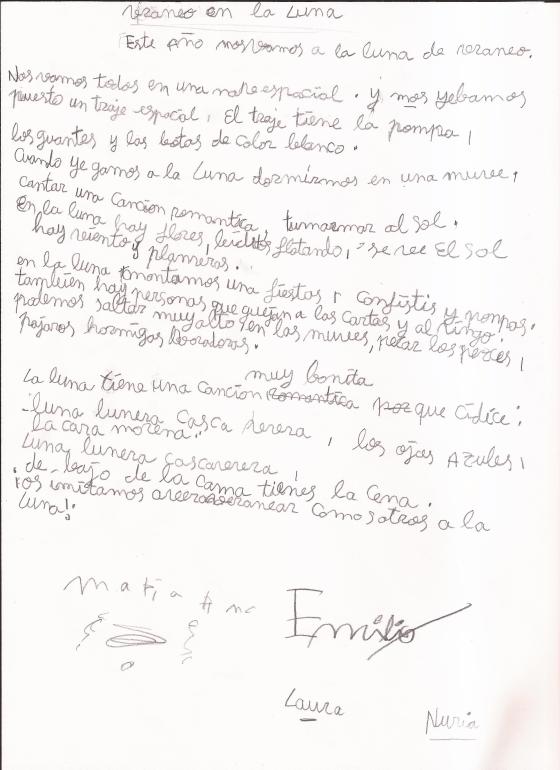 veraneo en la Luna
Este Año nos vamos a la luna de veraneo.
Nos vamos todos en una nave espacial. y nos yebamos
puesto un traje espacial, El traje tiene la pompa,
los guantes y las botas de color blanco.
Cuando yegamos a la Luna dormirmos en una nuve,
cantar una cancion romantica, tumarmar al sol.
En la luna hay flores, flotando, se vee El Sol
hay viento y
en la luna montamos una fiestas y
tambien hay personas que guejan a las Cartas y al vingo.
podemos saltar muy alto en las nuves, los peces,
pajaros hormigas boladoras.
La luna tiene una canción muy bonita porque cidice:
"luna lunera casca verera, los ojos Azules,
la cara morena."
Luna lunera cascarerera,
de-bajo de la cama tienes la cena.
ros imitamos a veranear comosotros a la
Luna!
Emilio
Laura
Nuria